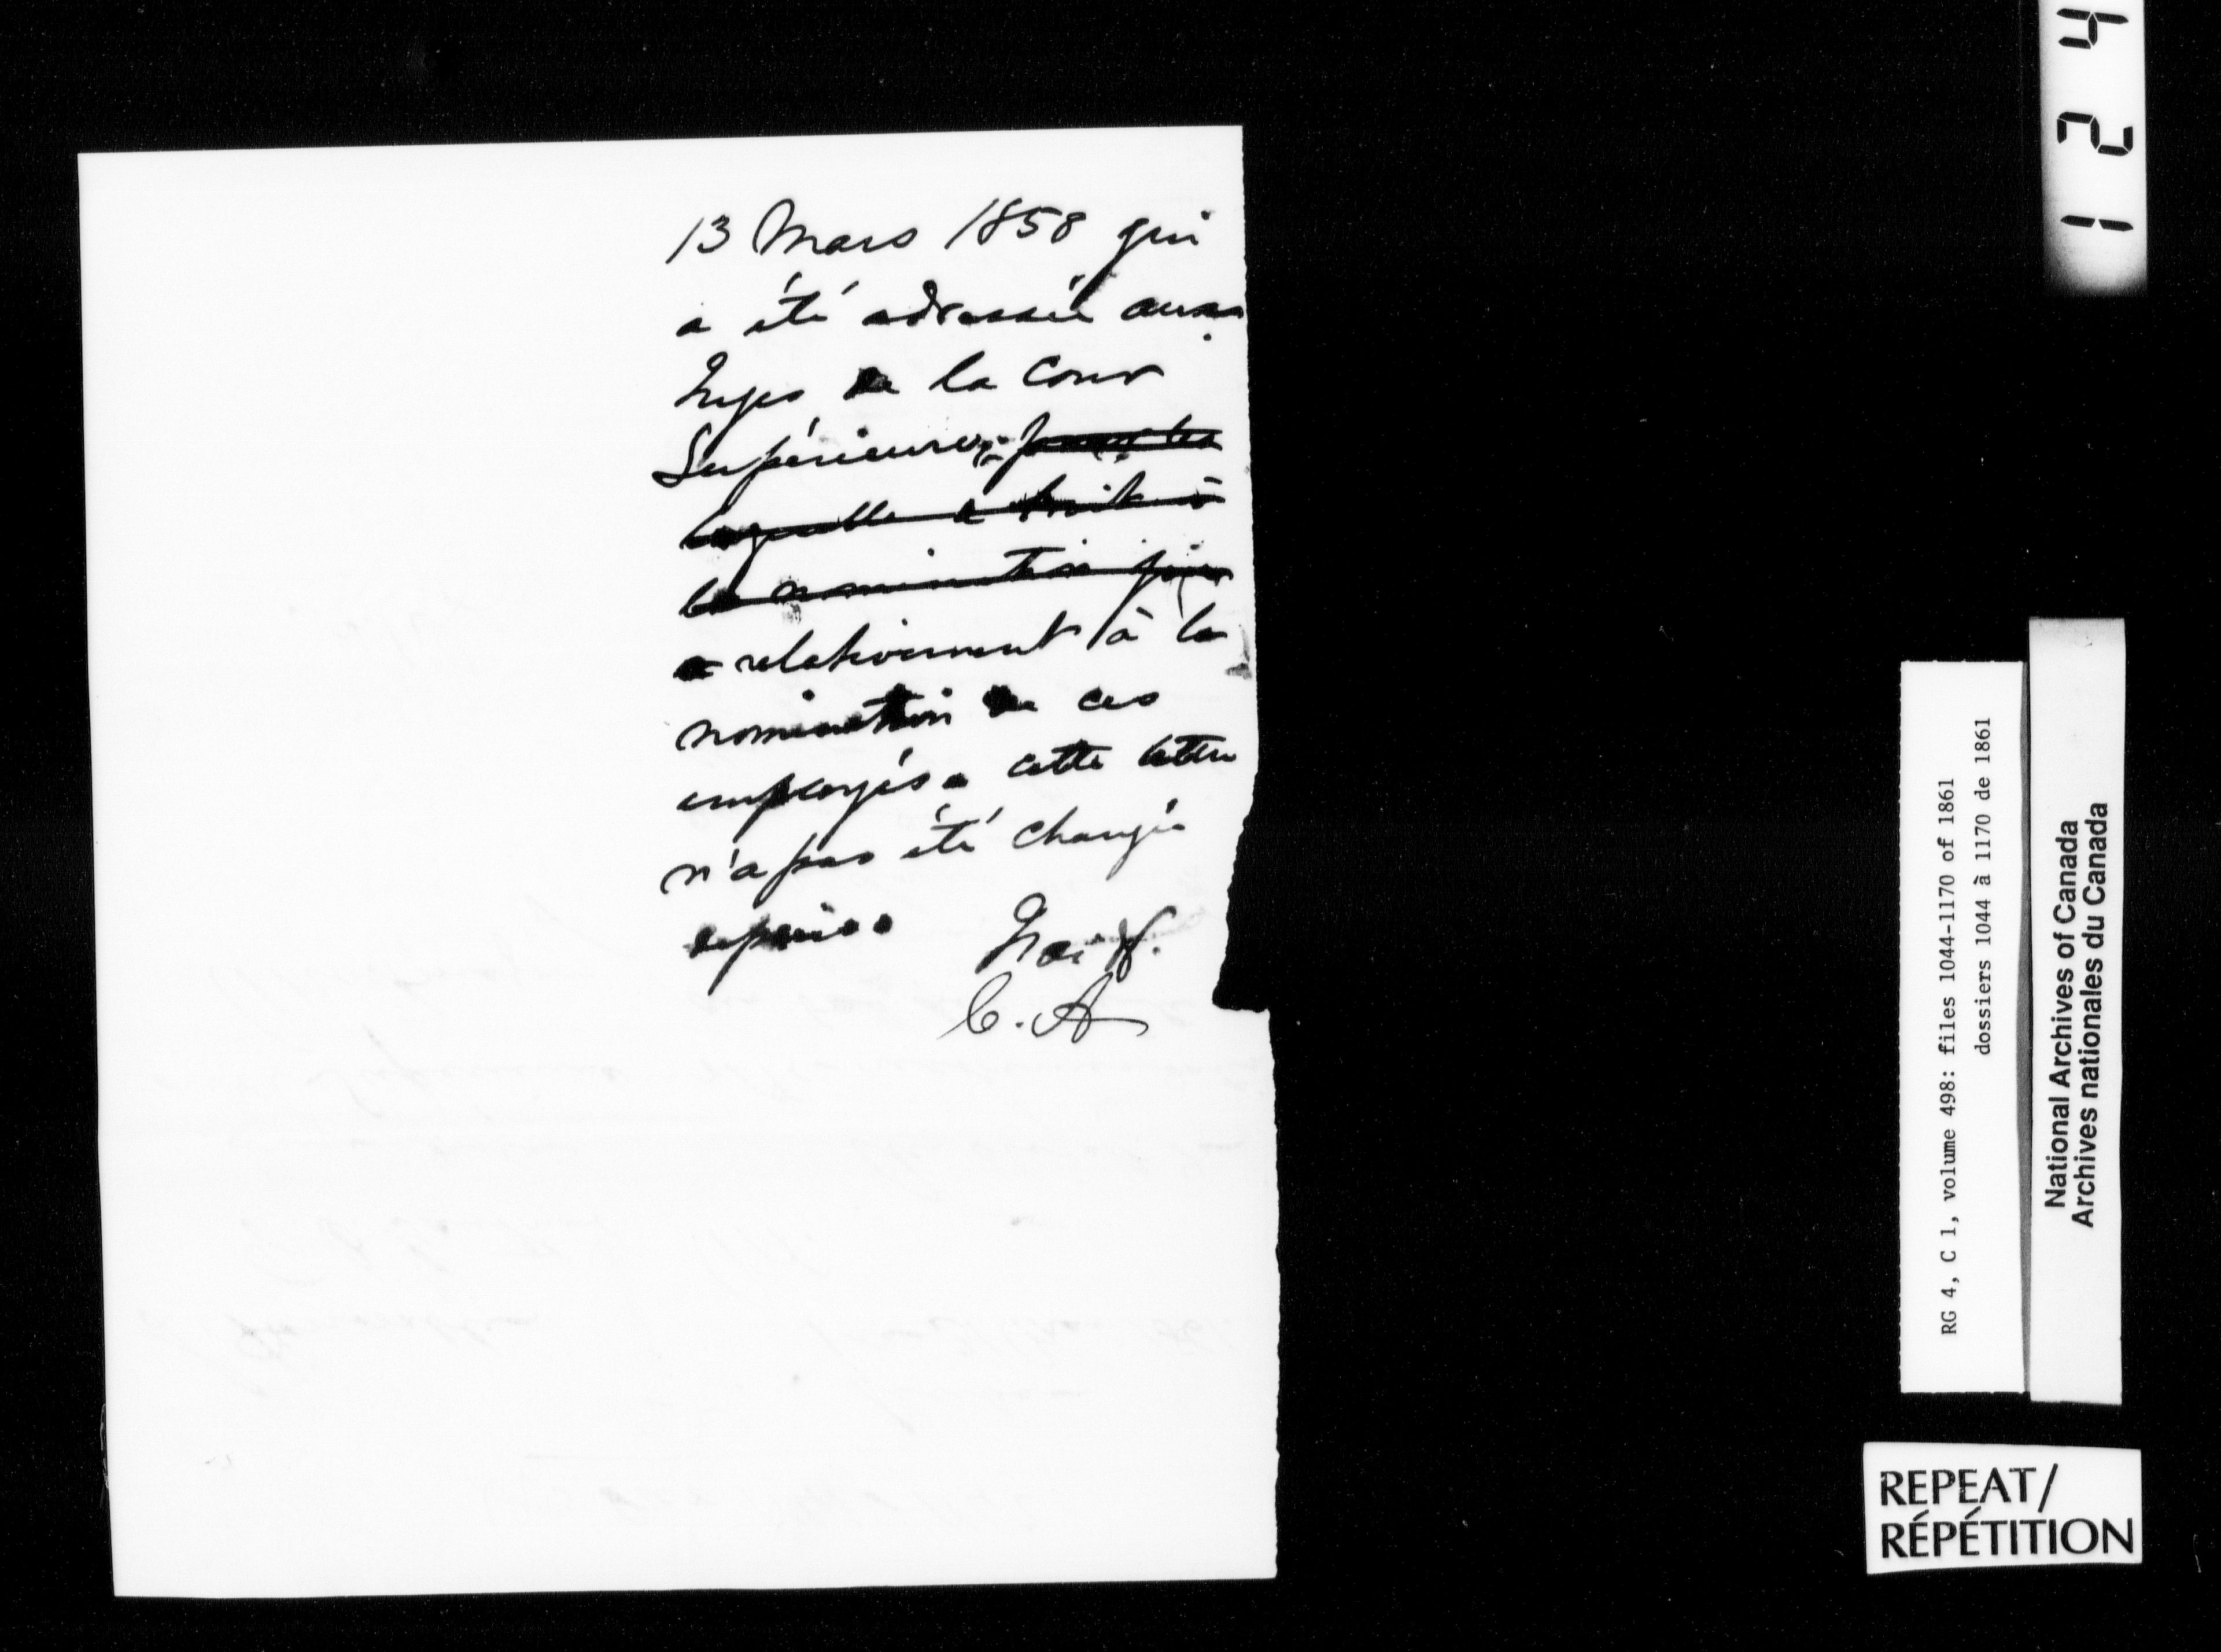 13 Mars 1858 qui
a été adressée aux
Juges de la Cour
Supérieure,
laquelle a trait à
la nomination
relativement à la
nomination de ces
employés. cette lettre
n'a pas été changée
depuis.
C. A
124
RG 4, C 1, volume 498: files 1044-1170 of 1861
dossiers 1044 à 1170 de 1861
National Archives of Canada
Archives nationales du Canada
REPEAT/
RÉPÉTITION